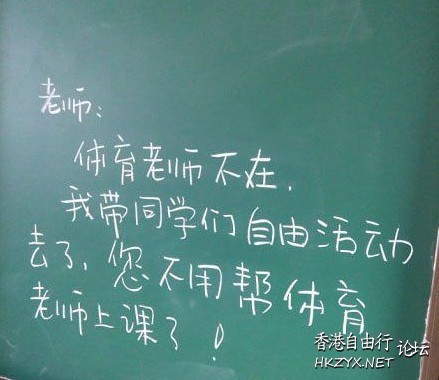 老师:
体育老师不在.
我带同学们自由活动
去了,您不用帮体育
老师上课了!
香港自由行 论坛
HKZYX.NET